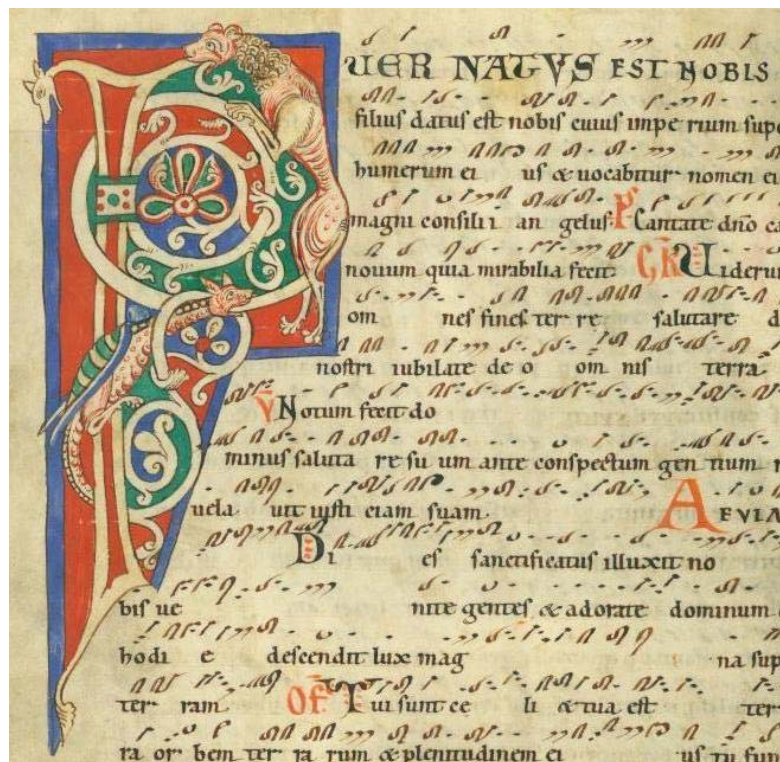 PUER NATVS EST NOBIS
filius datus est nobis cuius impe rium supe
humerum ei us & uocabitur nomen ei
magni consili i an gelus. P̄ Cantate dño ca
nouum quia mirabilia fecit GR̄ Uiderun
om nes fines ter re salutare d
nostri iubilate de o om nis terra
V̄ Notum fecit do
minus saluta re su um ante conspectum gen tium r
uela uit iusti ciam suam. AEVIA
DI es sanctificatus illuxit no
bis ue nite gentes & adorate dominum
hodi e descendit lux mag na sup
ter ram OF̄ Tui sunt ce li & tua est ter
ra or bem ter ra rum & plenitudinem ei us tu fun